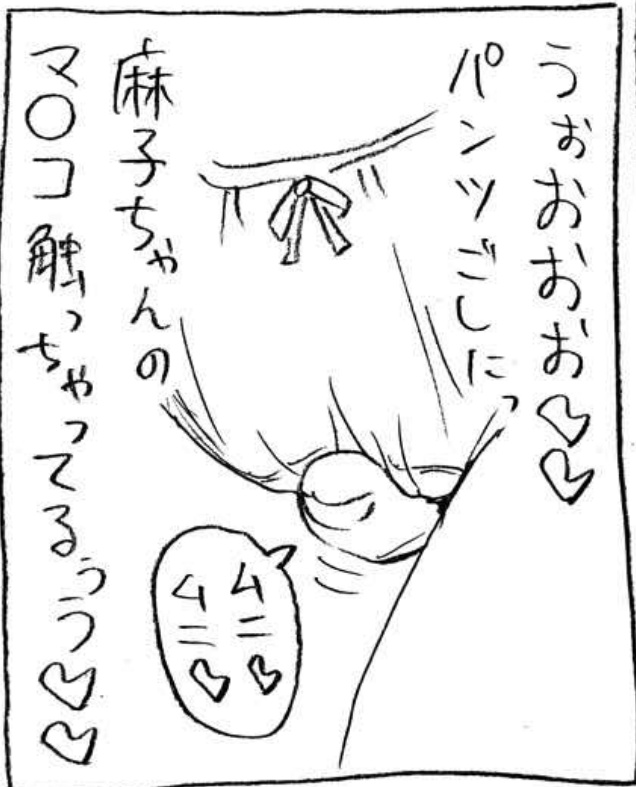 うぉおおお♡♡
パンツごしにっ
麻子ちゃんの
マ○コ触っちゃってるぅう♡♡
ムニ♡
ムニ♡